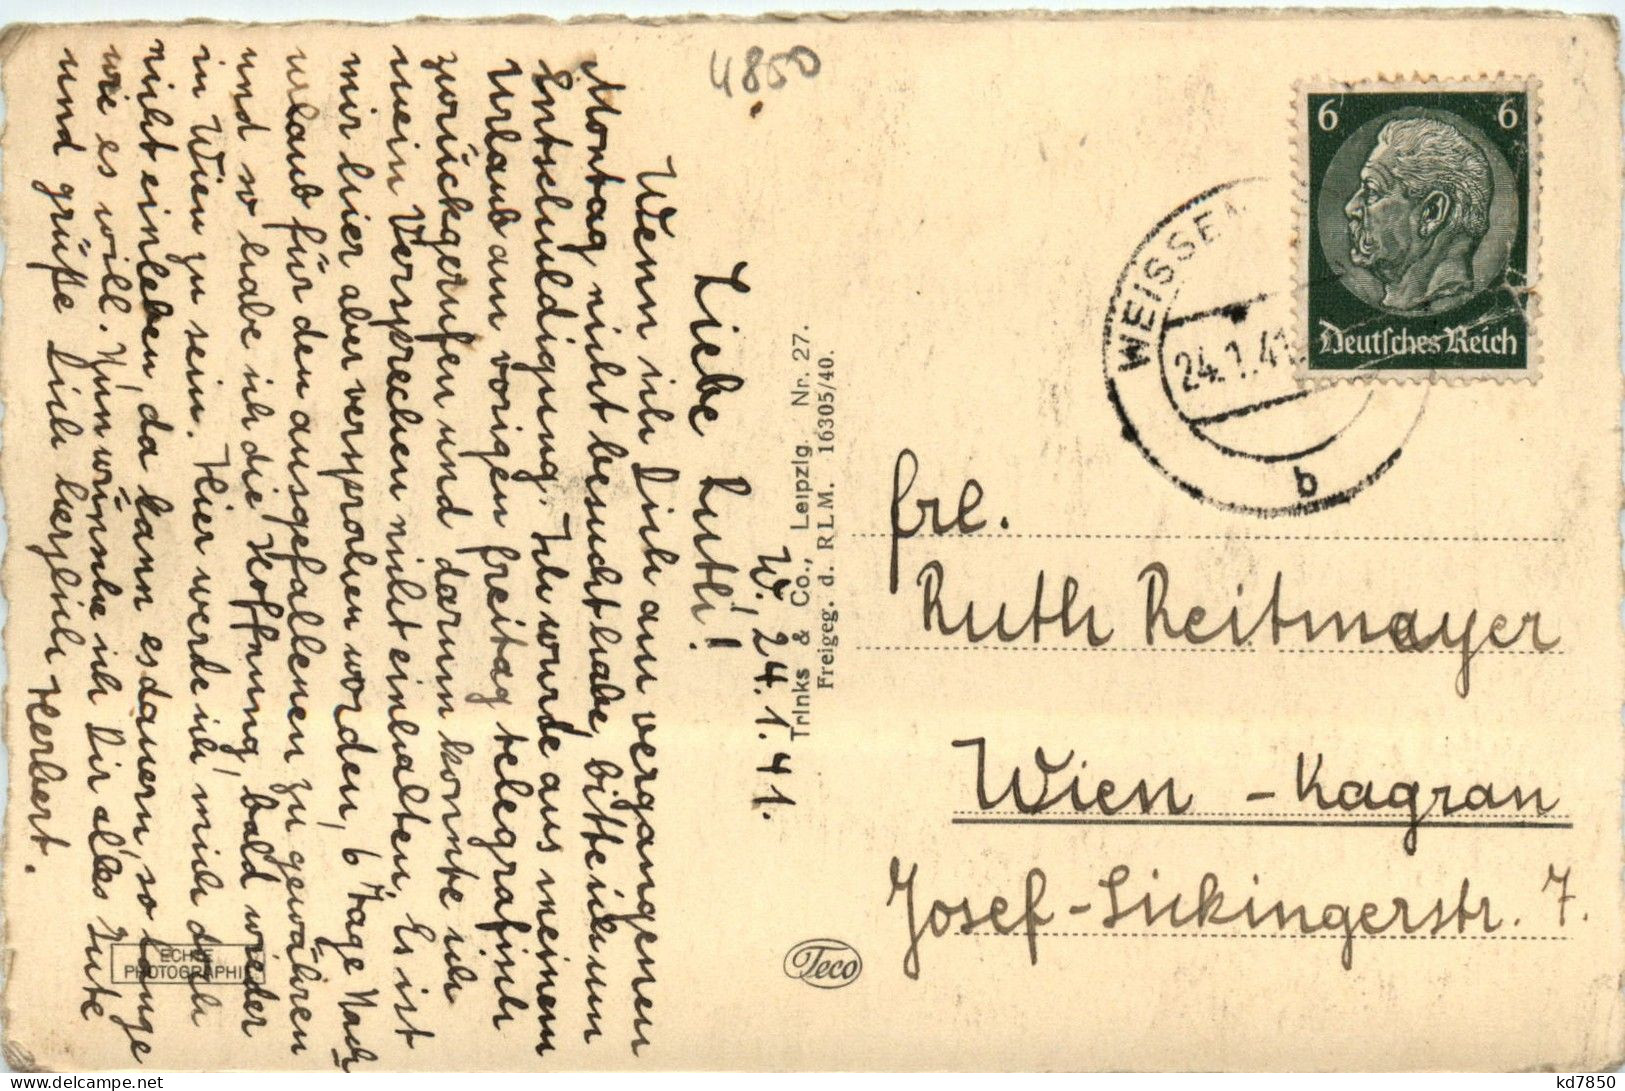 4850
W., 24.1.41.
Liebe Ruth!
Wenn ich Dich am vergangenen
Montag nicht besucht habe, bitte ich um
Entschuldigung. Ich wurde aus meinem
Urlaub am vorigen Freitag telegrafisch
zurückgerufen und darum konnte ich
mein Versprechen nicht einhalten. Es ist
mir hier aber versprochen worden, 6 Tage Nach-
urlaub für den ausgefallenen zu gewähren
und so habe ich die Hoffnung, bald wieder
in Wien zu sein. Hier werde ich mich doch
nicht einleben, da kann es dauern, so lange
wie es will. Nun wünsche ich Dir alles Gute
und grüße Dich herzlich Herbert.
Trinks & Co., Leipzig. Nr. 27.
Freigeg. d. RLM. 16305/40.
ECHTE
PHOTOGRAPHIE
Teco
6 6
Deutsches Reich
WEISSEN
24.1.41
b
Frl.
Ruth Reitmayer
Wien - Kagran
Josef-Sickingerstr. 7.
kd7850